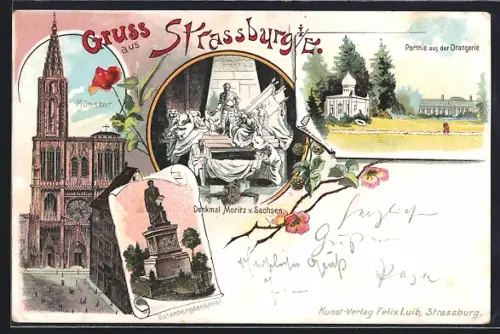 Gruss
aus
Strassburg i/E.
Parthie aus der Orangerie
Münster.
Denkmal Moritz v. Sachsen.
Gutenbergdenkmal
Herzlichen
Gruß
Gruß
Kunst-Verlag Felix Luib, Strassburg.